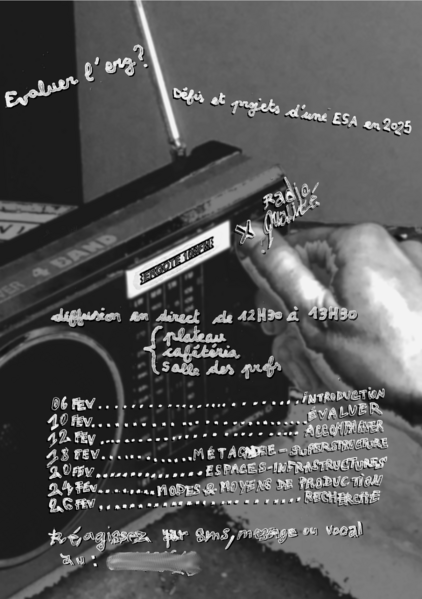 Evaluer l'erg?
Défis et projets d'une ESA en 2025
Radio
qualité
4 BAND
diffusion en direct de 12H30 à 13H30
plateau
cafétéria
salle des profs
06 FEV INTRODUCTION
10 FEV ÉVALUER
12 FEV ACCOMPAGNER
18 FEV MÉTACADRE-SUPERSTRUCTURE
20 FEV ESPACES-INFRASTRUCTURES
24 FEV MODES & MOYENS DE PRODUCTION
26 FEV RECHERCHE
Réagissez par sms, message ou vocal
au :